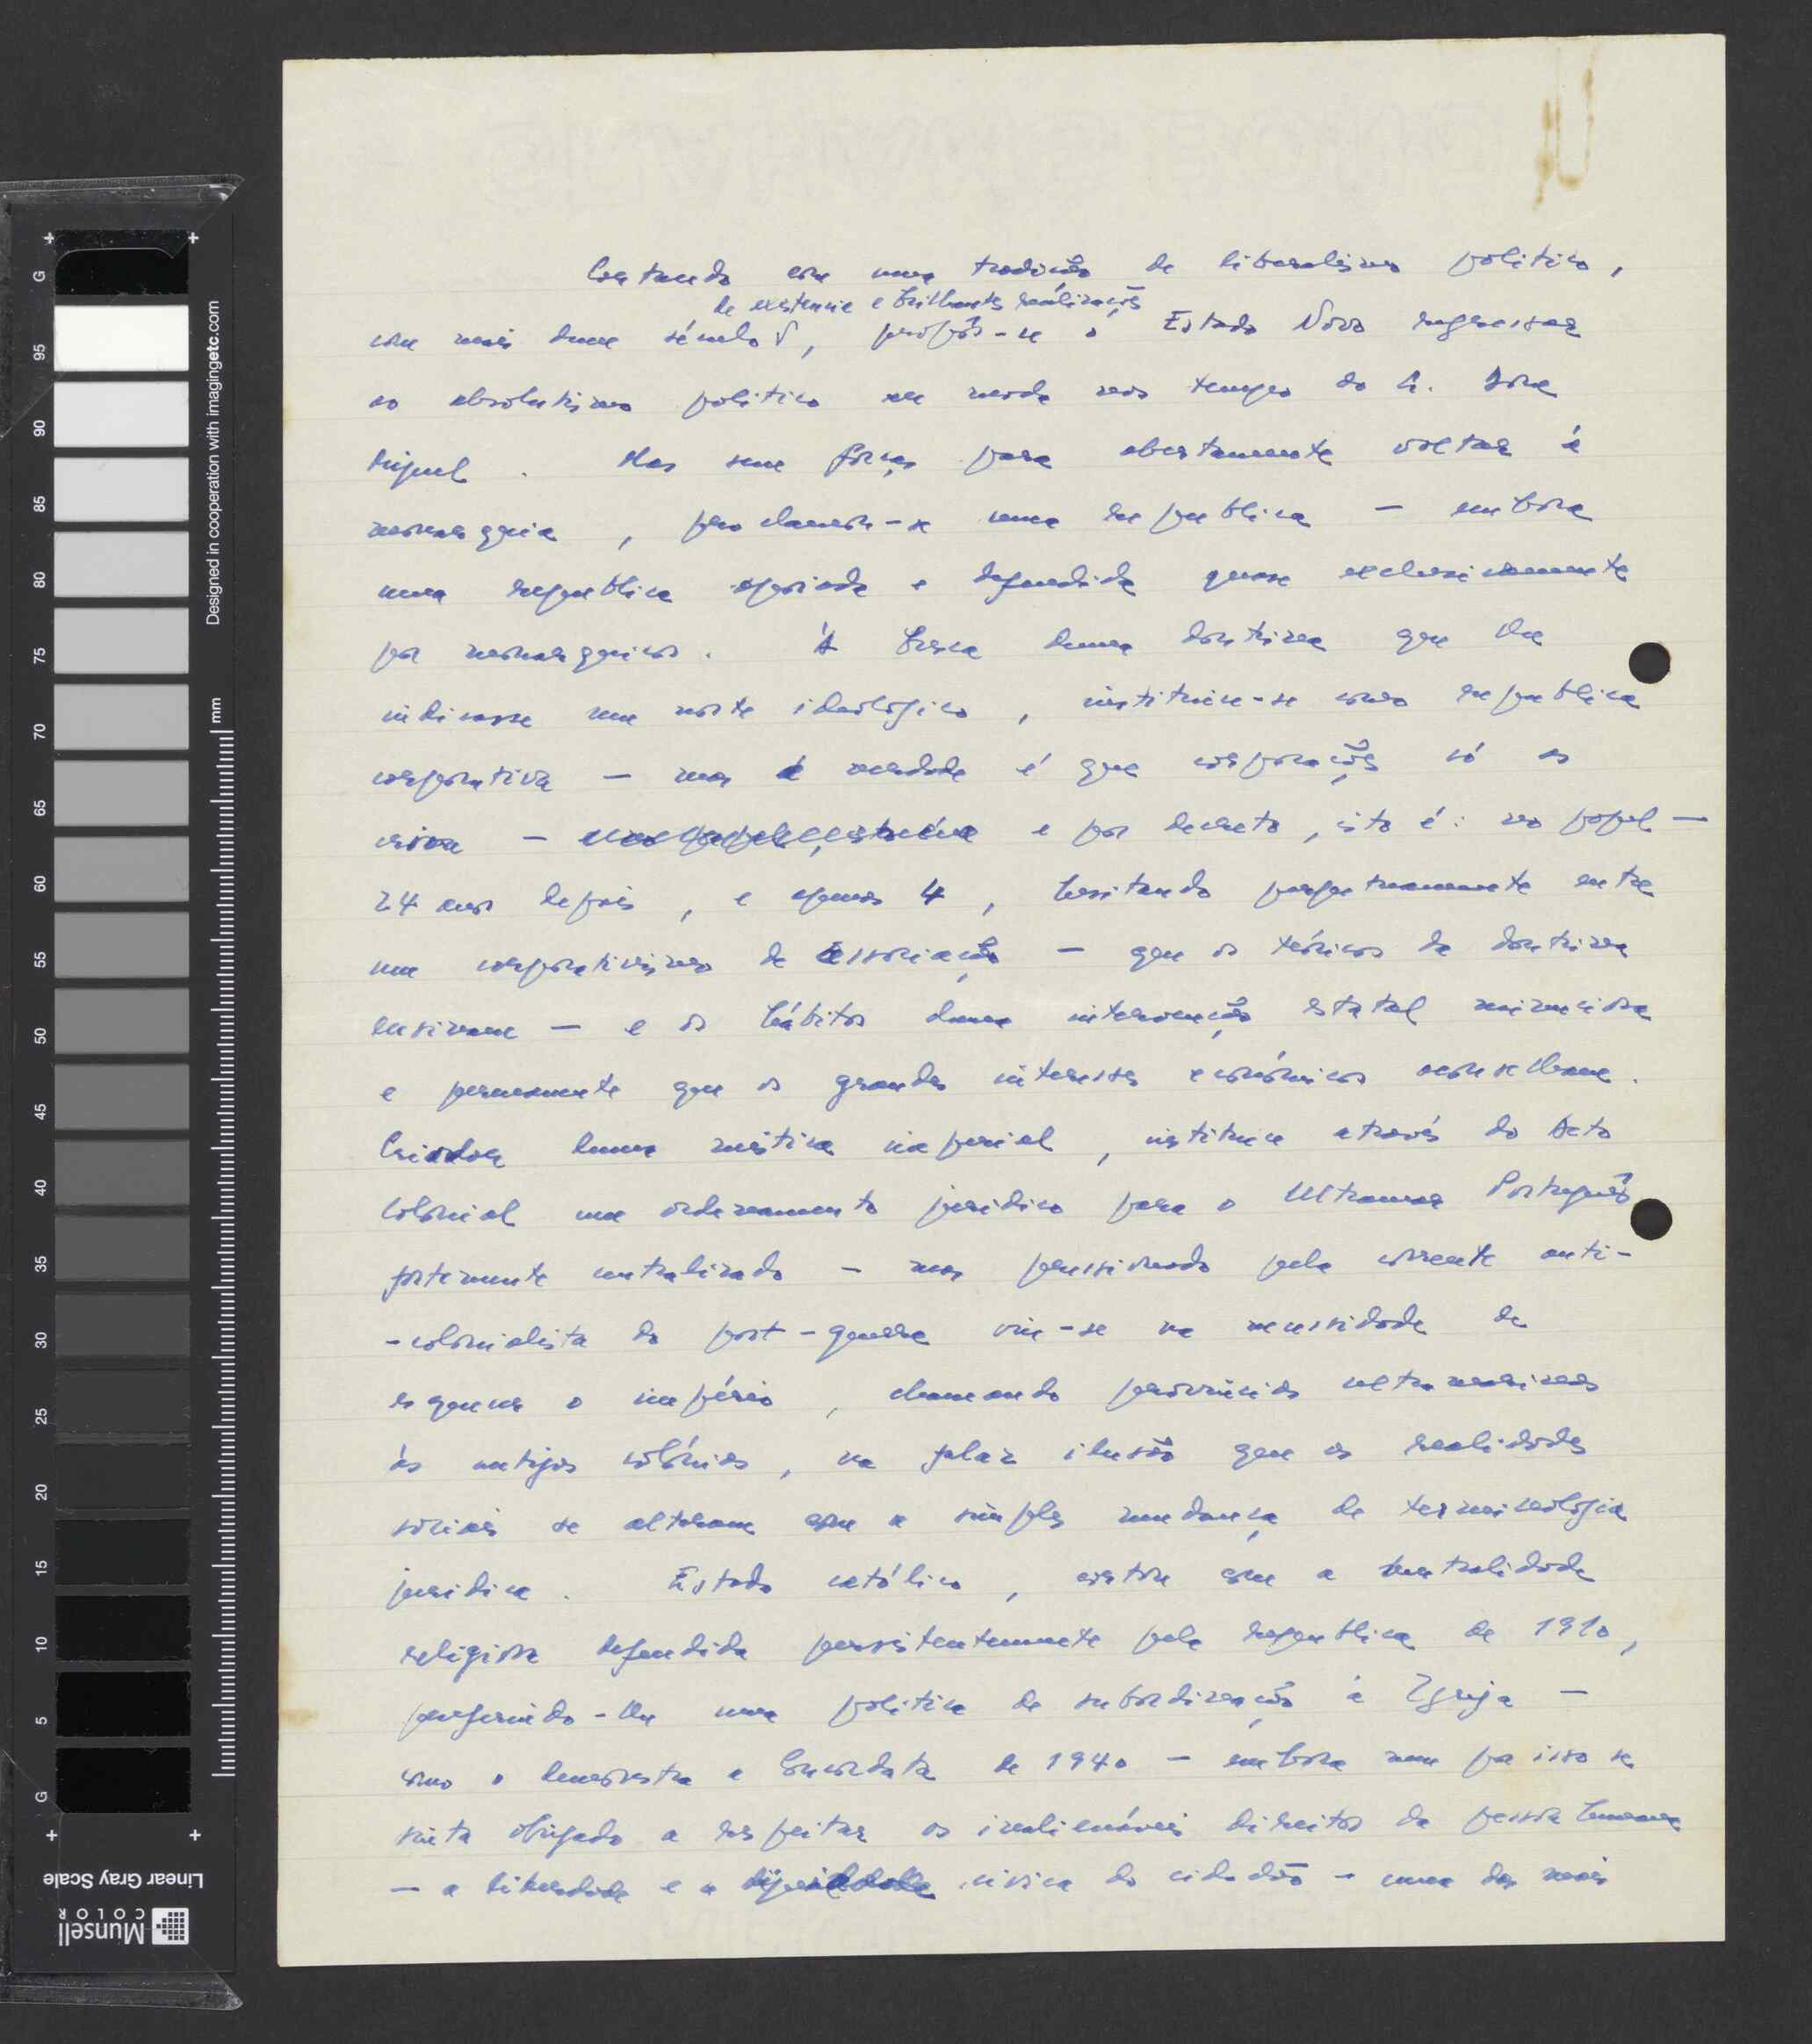 Cortando com uma tradição de liberalismo politico,
de existencia e brilhantes realizações
com mais dum século, propôs-se o Estado Novo regressar
ao absolutismo politico em moda nos tempos do S. Dom
Miguel. Mas sem forças para abertamente voltar à
monarquia, proclamou-se uma republica — embora
uma republica apoiada e defendida quase exclusivamente
por monarquicos. À busca duma doutrina que lhe
indicasse um norte ideológico, instituiu-se como republica
corporativa — mas a verdade é que corporações só as
criou — e por decreto, isto é: no papel —
24 anos depois, e apenas 4, hesitando perpetuamente entre
um corporativismo de associação — que os teóricos da doutrina
ensinam — e os hábitos duma intervenção estatal minuciosa
e permanente que os grandes interesses económicos aconselham.
Criador duma mística imperial, instituiu através do Acto
Colonial um ordenamento juridico para o Ultramar Português
fortemente centralizado — mas pressionado pela corrente anti-
-colonialista do post-guerra viu-se na necessidade de
esquecer o império, chamando províncias ultramarinas
às antigas colónias, na falaz ilusão que as realidades
sociais se alteram com a simples mudança de terminologia
juridica. Estado católico, cortou com a neutralidade
religiosa defendida persistentemente pela republica de 1910,
preferindo-lhe uma politica de subordinação à Igreja —
como o demonstra a Concordata de 1940 — embora nem por isso se
sinta obrigado a respeitar os inalienáveis direitos da pessoa humana
— a liberdade e a dignidade civica do cidadão — uma das mais
Designed in cooperation with imagingetc.com
mm
G 95 90 85 80 75 70 65 60 55 50 45 40 35 30 25 20 15 10 5 G
Linear Gray Scale
Munsell
COLOR